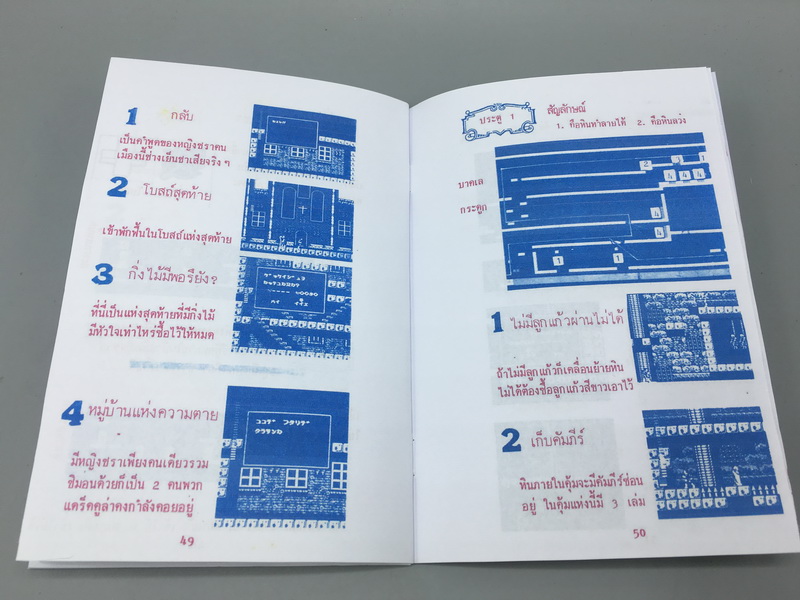 1 กลับ
เป็นคำพูดของหญิงชราคน
เมืองนี้ช่างเย็นชาเสียจริง ๆ
2 โบสถ์สุดท้าย
เข้าพักฟื้นในโบสถ์แห่งสุดท้าย
3 กิ่งไม้มีพอรึยัง?
ที่นี่เป็นแห่งสุดท้ายที่มีกิ่งไม้
มีหัวใจเท่าไหร่ซื้อไว้ให้หมด
4 หมู่บ้านแห่งความตาย
ココデ フタリデ
クラサンカ
มีหญิงชราเพียงคนเดียวรวม
ซิม่อนด้วยก็เป็น 2 คนพวก
แดร็คคูล่าคงกำลังคอยอยู่
49
ประตู 1
สัญลักษณ์
1. คือหินทำลายได้ 2. คือหินลวง
บาดเล
กระดูก
2 3 1
4 4 4
4
4
1 1
1 ไม่มีลูกแก้วผ่านไม่ได้
ถ้าไม่มีลูกแก้วก็เคลื่อนย้ายหิน
ไม่ได้ต้องซื้อลูกแก้วสีขาวเอาไว้
2 เก็บคัมภีร์
หินภายในคุ้มจะมีคัมภีร์ซ่อน
อยู่ ในคุ้มแห่งนี้มี 3 เล่ม
50